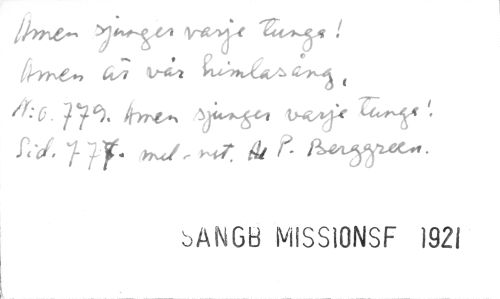 Amen sjunger varje tunga!
Amen är vår himlasång,
N:o. 779. Amen sjunger varje tunga!
Sid. 777. mel.-not. A P. Berggreen.
SANGB MISSIONSF 1921